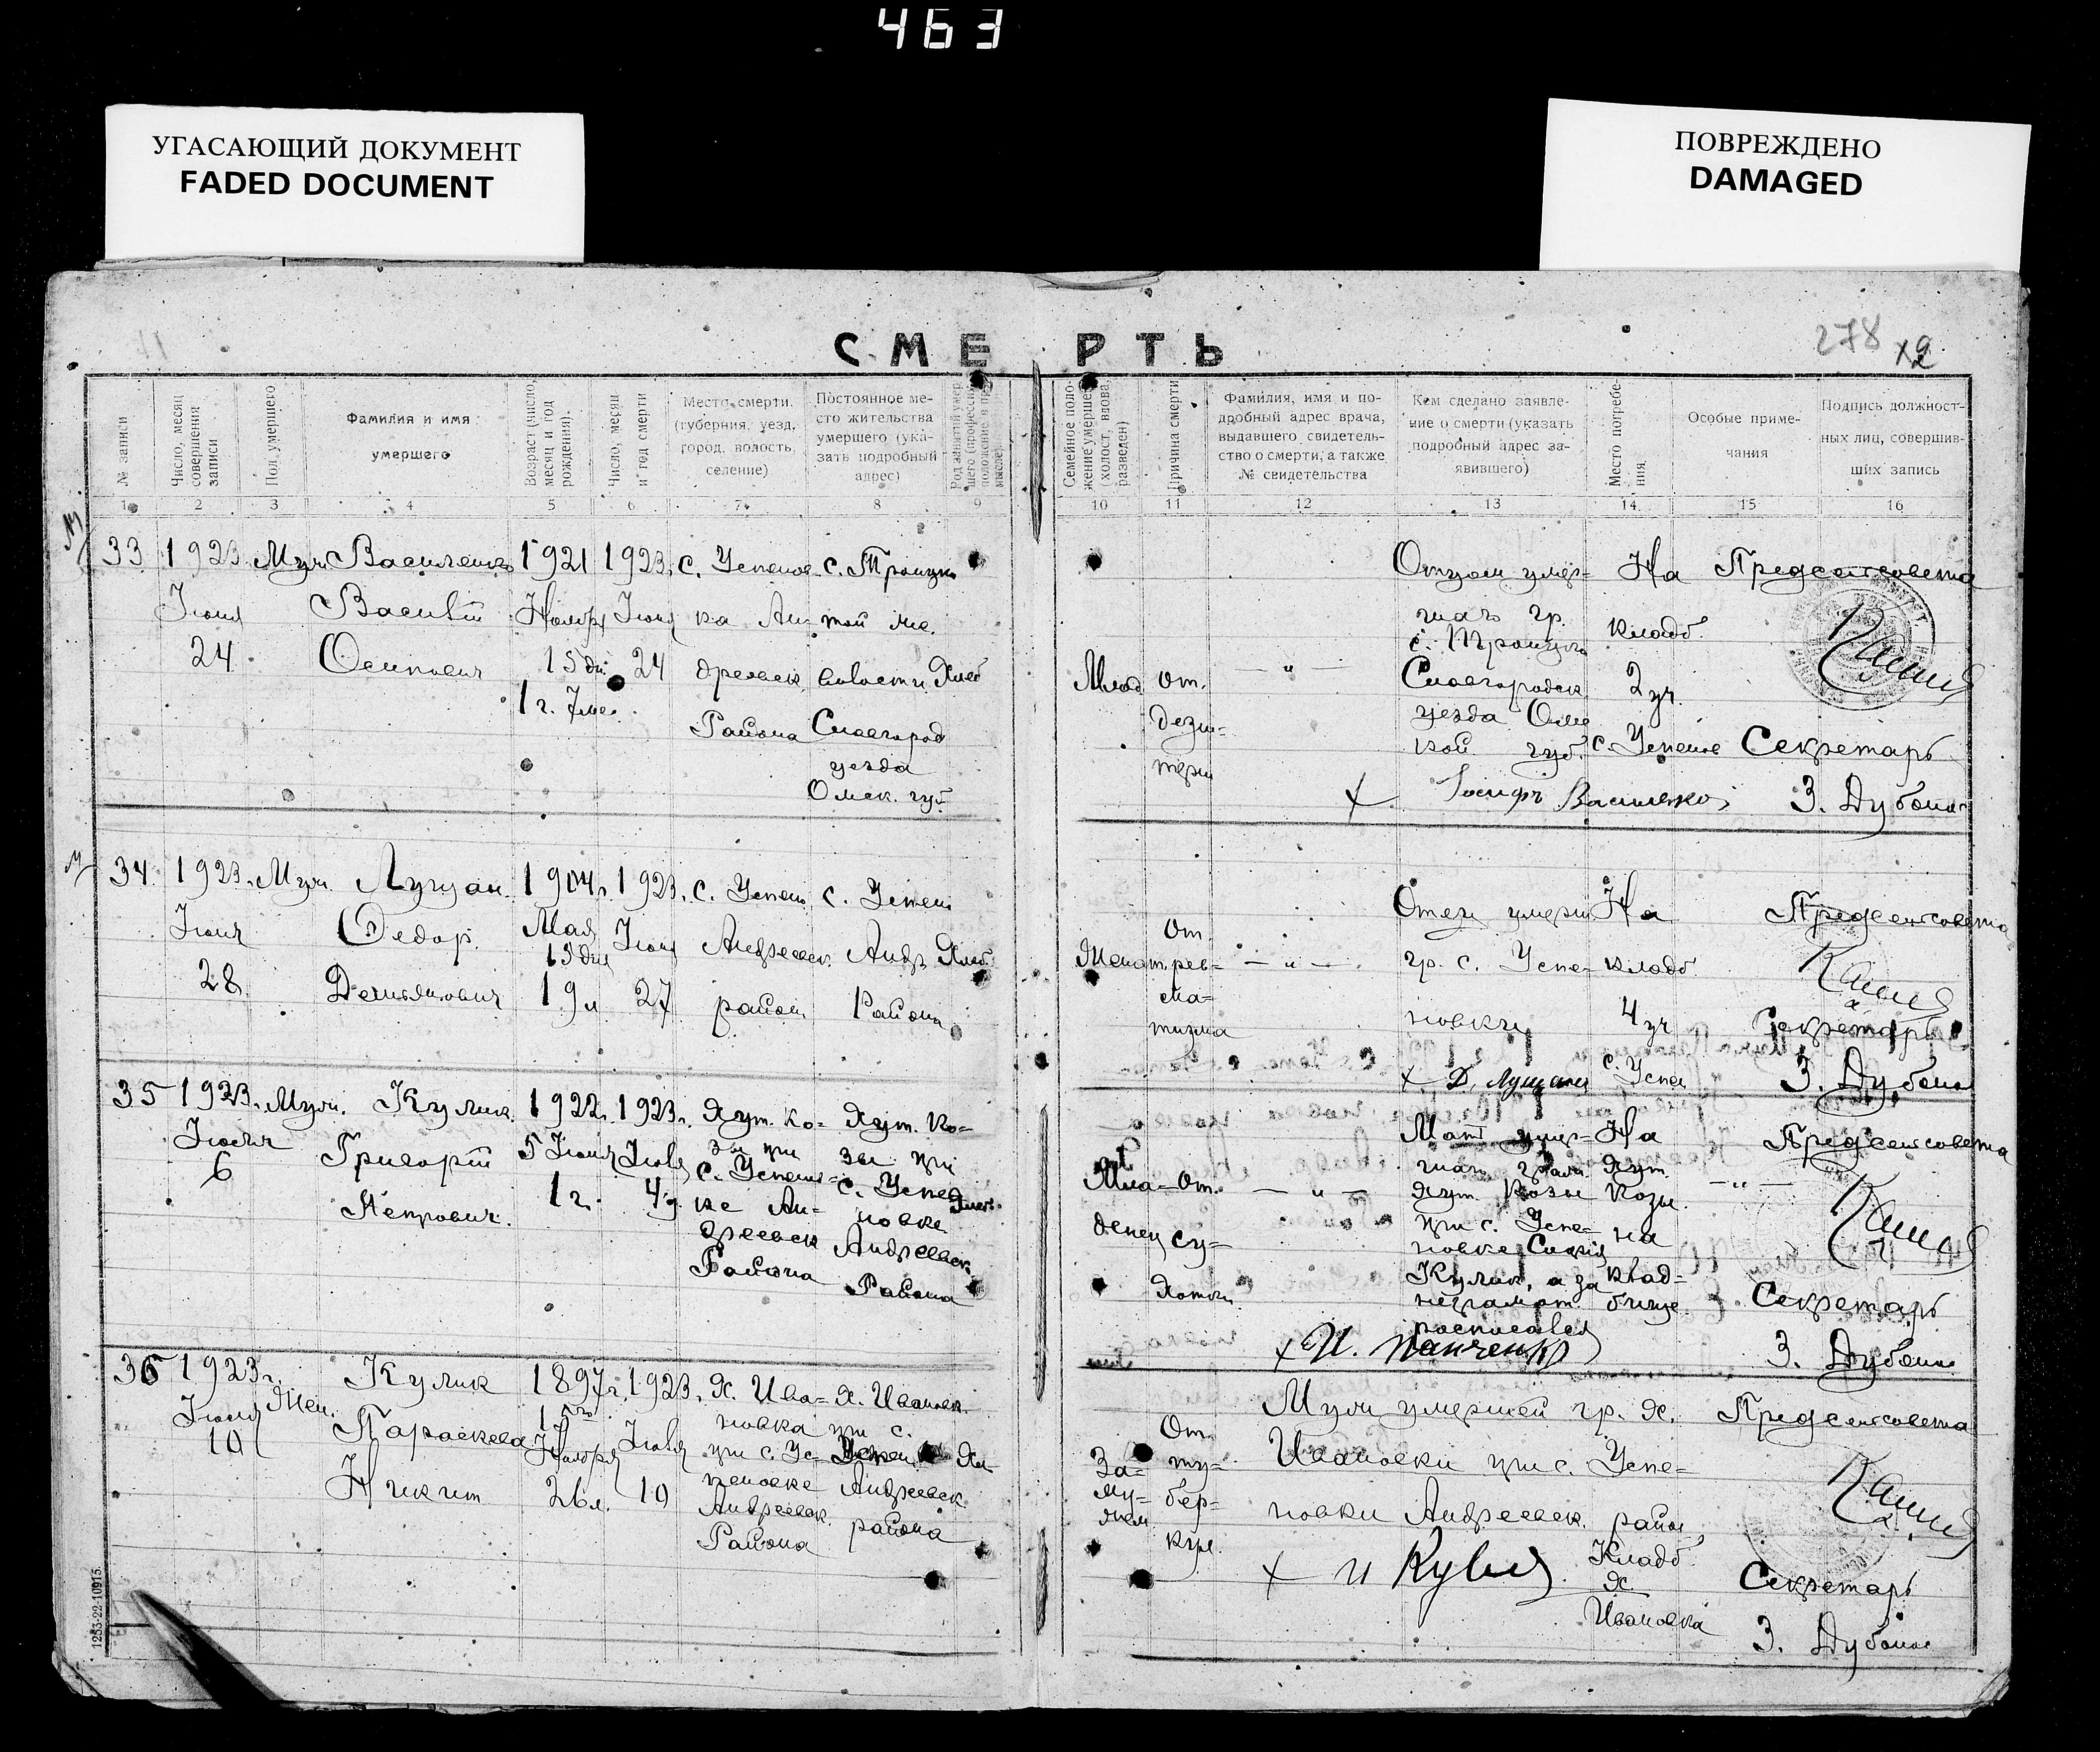 463
УГАСАЮЩИЙ ДОКУМЕНТ
FADED DOCUMENT
ПОВРЕЖДЕНО
DAMAGED
СМЕРТЬ
278
№ записи
Число, месяц совершения записи
Пол умершего
Фамилия и имя
умершего
Возраст (число, месяц и год рождения).
Число, месяц и год смерти
Место смерти.
(губерния, уезд,
город, волость,
селение)
Постоянное ме-
сто жительства
умершего (ука-
зать подробный
адрес)
Семейное поло-
жение умершего
(холост, вдова,
разведен)
Причина смерти
Фамилия, имя и по-
дробный адрес врача,
выдавшего свидетель-
ство о смерти, а также
№ свидетельства
Кем сделано заявле-
ние о смерти (указать
подробный адрес за-
явившего)
Место погребе-
ния.
Особые приме-
чания
Подпись должност-
ных лиц, совершив-
ших запись
1 2 3 4 5 6 7 8 9 10 11 12 13 14 15 16
33
1923
Июня
24
Муж
Василенко
Василий
Осипович
1921
Ноябр
15 дн.
1 г. 7 ме.
1923
Июня
24
с. Успенов-
ка Ан-
дреевск
Района
с. Троицко
той же
волости
Славгород
уезда
Омск. губ
Млад
от.
дизен-
терии
— " —
Отцом умер-
шаго гр.
с. Троицкого
Славгородск
уезда Омс
кой губ.
На
кладб.
2 уч.
с. Успенов
Предсельсовета
Секретарь
З. Дубовик
х Иосиф Василенко
34
1923.
Июня
28
Муж.
Лущан
Федор
Демьянович
1904 г.
Мая
15 дня
19 л
1923.
Июня
27
с. Успен.
Андреевск
район
с. Успен
Андр
Района
Хлеб.
Женат
от
рев-
ма-
тизма
— " —
Отец умерш
гр. с. Успе-
новки
На
кладб
4 уч
с. Успен
Предсельсовета
Секретарь
З. Дубовик
х Д. Лущан
35
1923.
6
Муж.
Кулик
Григорий
Петрович.
1922.
1 г.
1923 г.
4 д.
Хут. Ко-
зы при
с. Успенов-
ке Ан-
дреевск
Района
Хут. Ко-
зы при
с. Успе
новке
Андреевск
Района
Мла-
денец
от.
су-
хотки
— " —
Мать умер-
шаго граж.
хут. Козы
при с. Успе-
новке София
Кулик, а за
неграмот.
расписался
На
хут.
Козы
на
клад-
бище
— " —
Предсельсовета
Секретарь
З. Дубовик
х И. Панченко
36
1923 г.
10
Жен.
Кулик
Параскева
Никит
1897 г.
Ноября
26 л.
1923.
10
Х. Ива-
новка
при с. Ус-
пеновке
Андреевск.
Района
Х. Ивановк.
при с.
Успен
Андреевск
района
За-
му-
жем
От
ту-
бер-
куле.
Муж умершей гр. Х.
Ивановки при с. Успе-
новки Андреевск. район.
Кладб.
х.
Ивановка
Предсельсовета
Секретарь
З. Дубовик
х И Кулик
1253-22-10915.